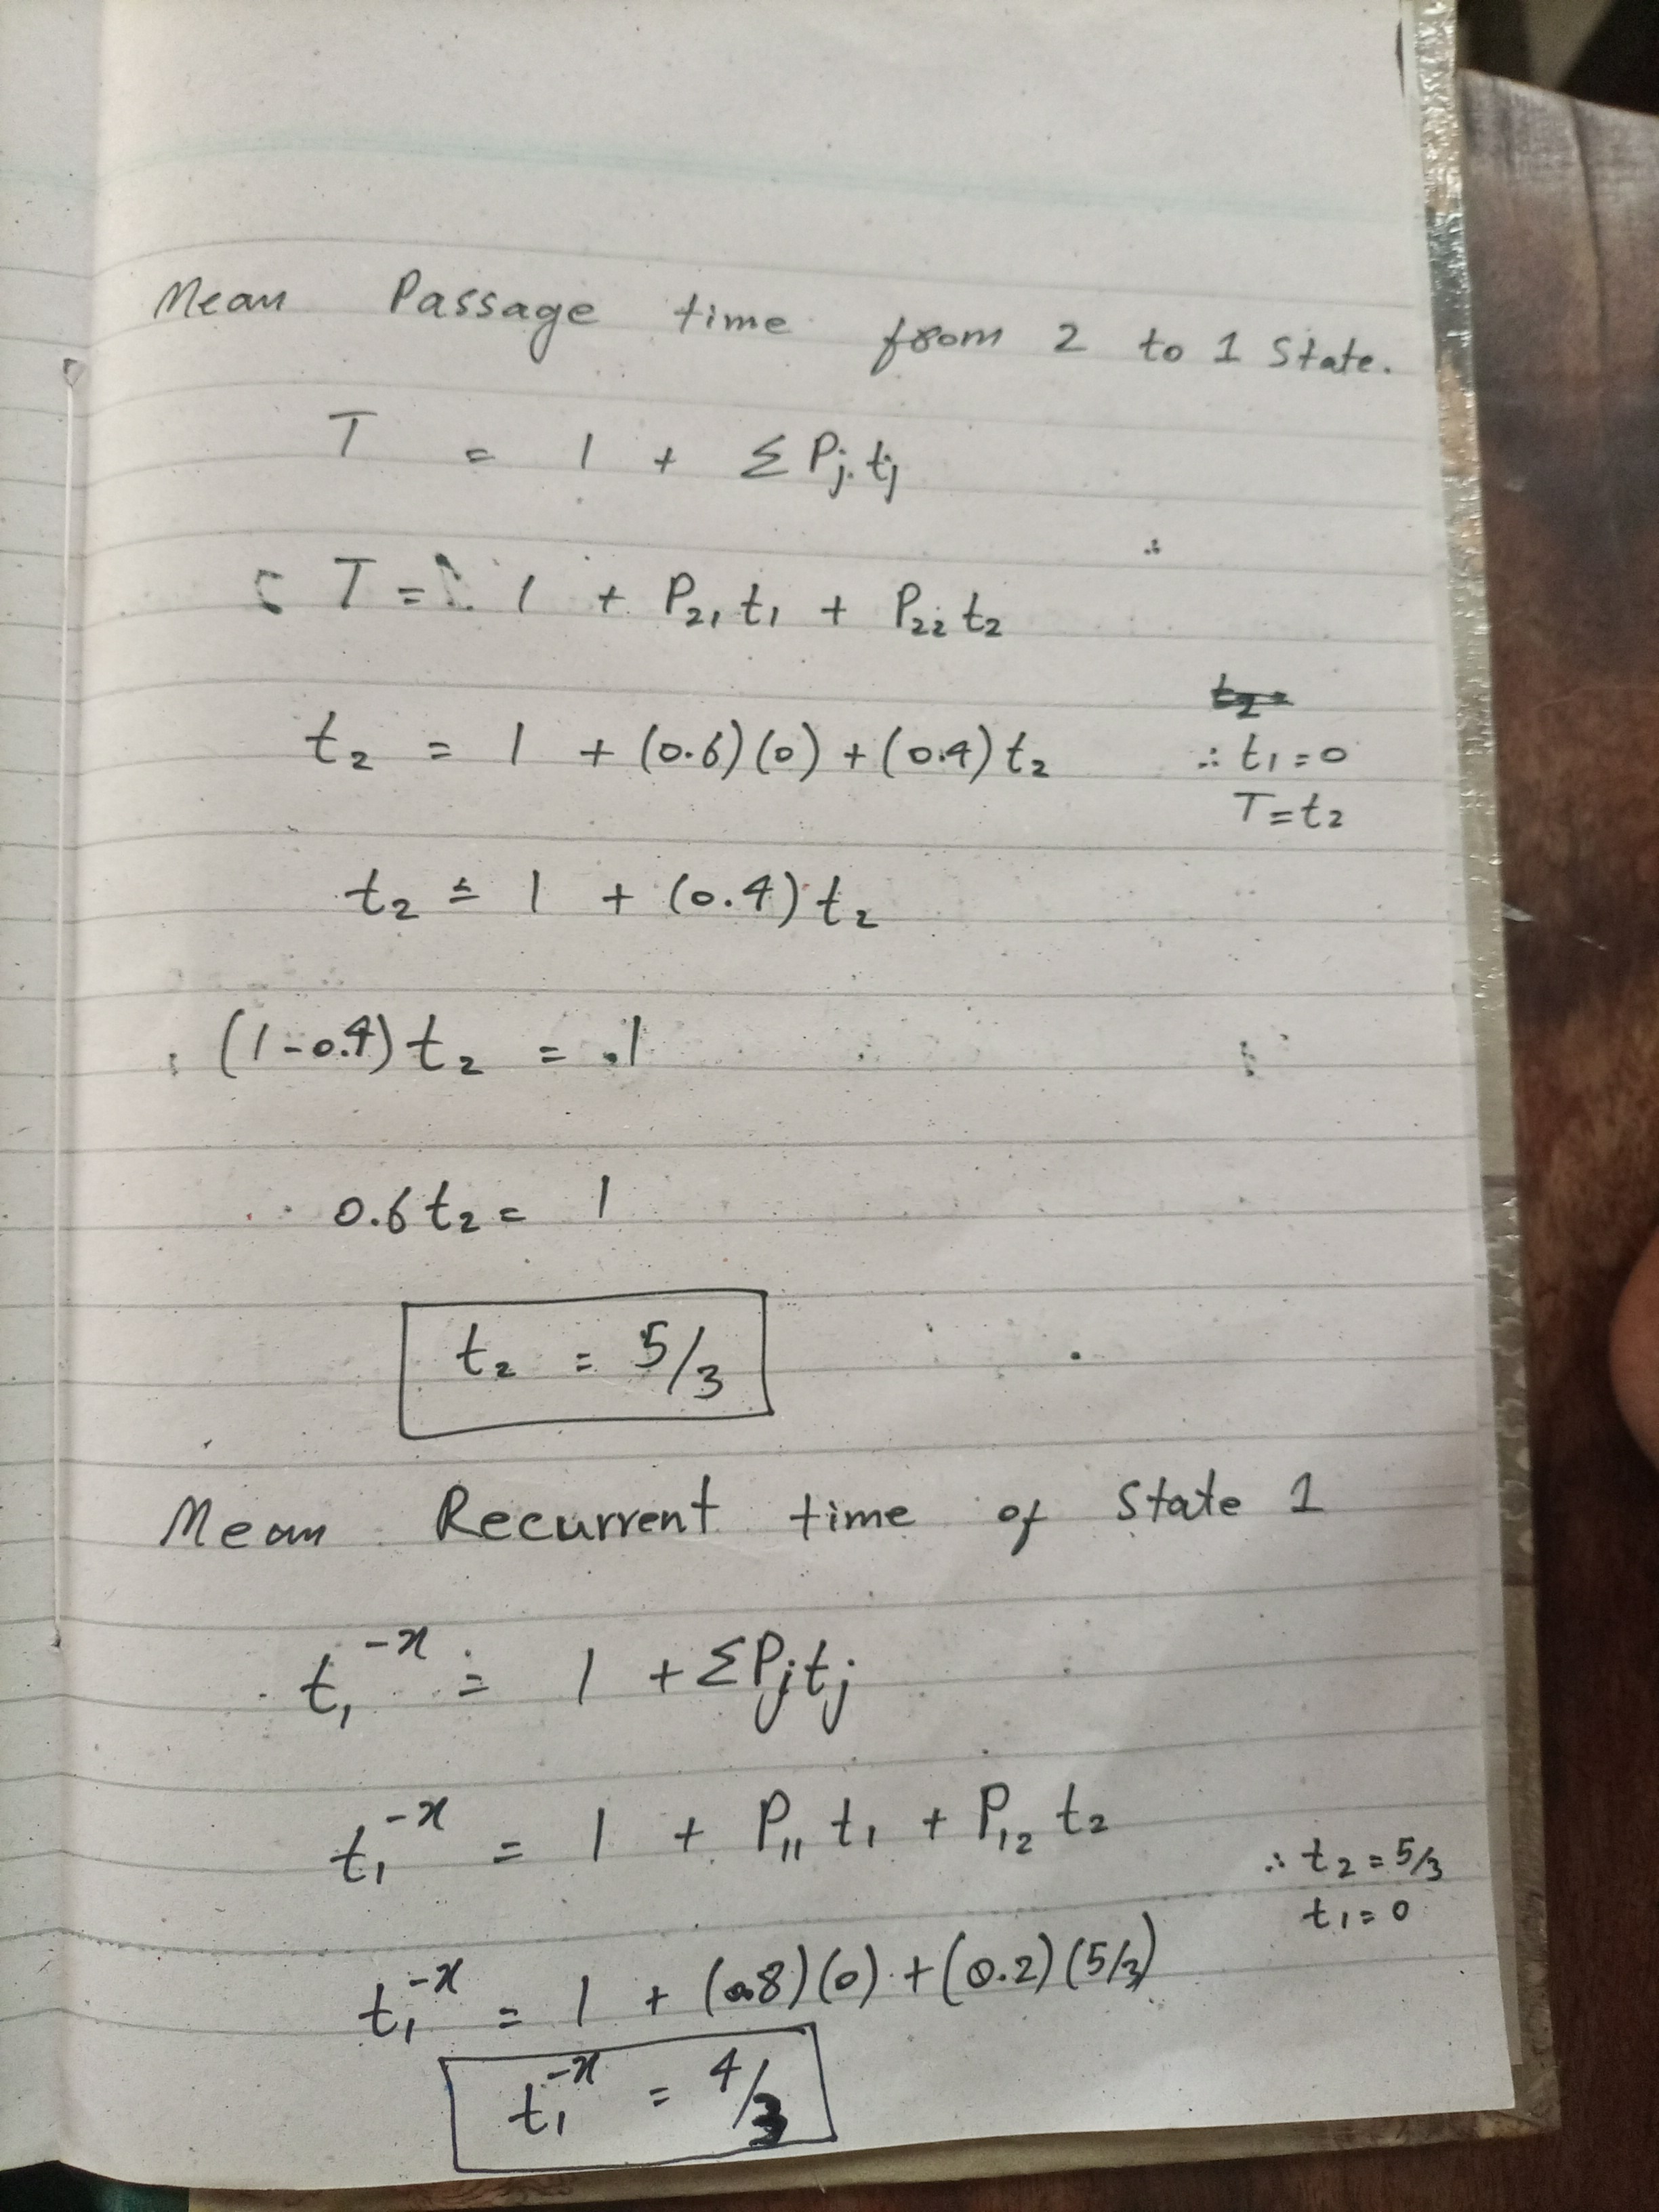 Mean Passage time from 2 to 1 State.
T = 1 + Σ Pj. tj
T = 1 + P₂₁ t₁ + P₂₂ t₂
t₂ = 1 + (0.6)(0) + (0.4) t₂
∴ t₁ = 0
T = t₂
t₂ = 1 + (0.4) t₂
(1-0.4) t₂ = .1
0.6 t₂ = 1
t₂ = 5/3
Mean Recurrent time of State 1
t₁^-x = 1 + ΣPjtj
t₁^-x = 1 + P₁₁ t₁ + P₁₂ t₂
∴ t₂ = 5/3
t₁ = 0
t₁^-x = 1 + (0.8)(0) + (0.2)(5/3)
t₁^-x = 4/3